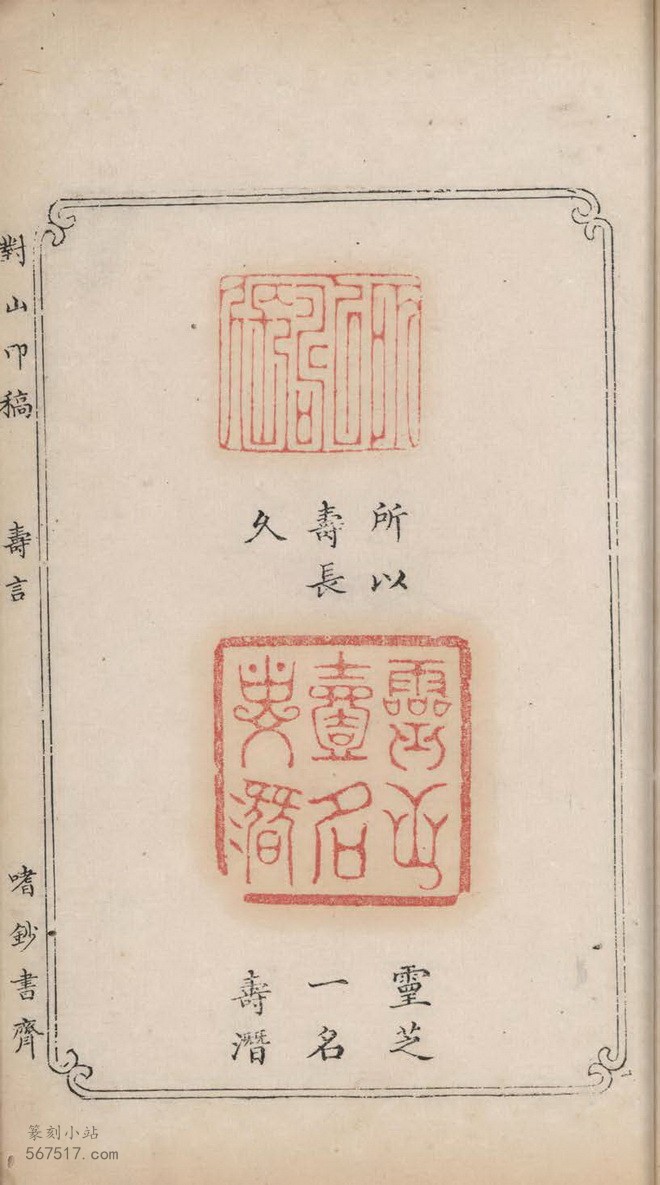 所以
壽長
久
靈芝
一名
壽潛
對山印稿
壽言
嗜鈔書齊
篆刻小站
567517.com